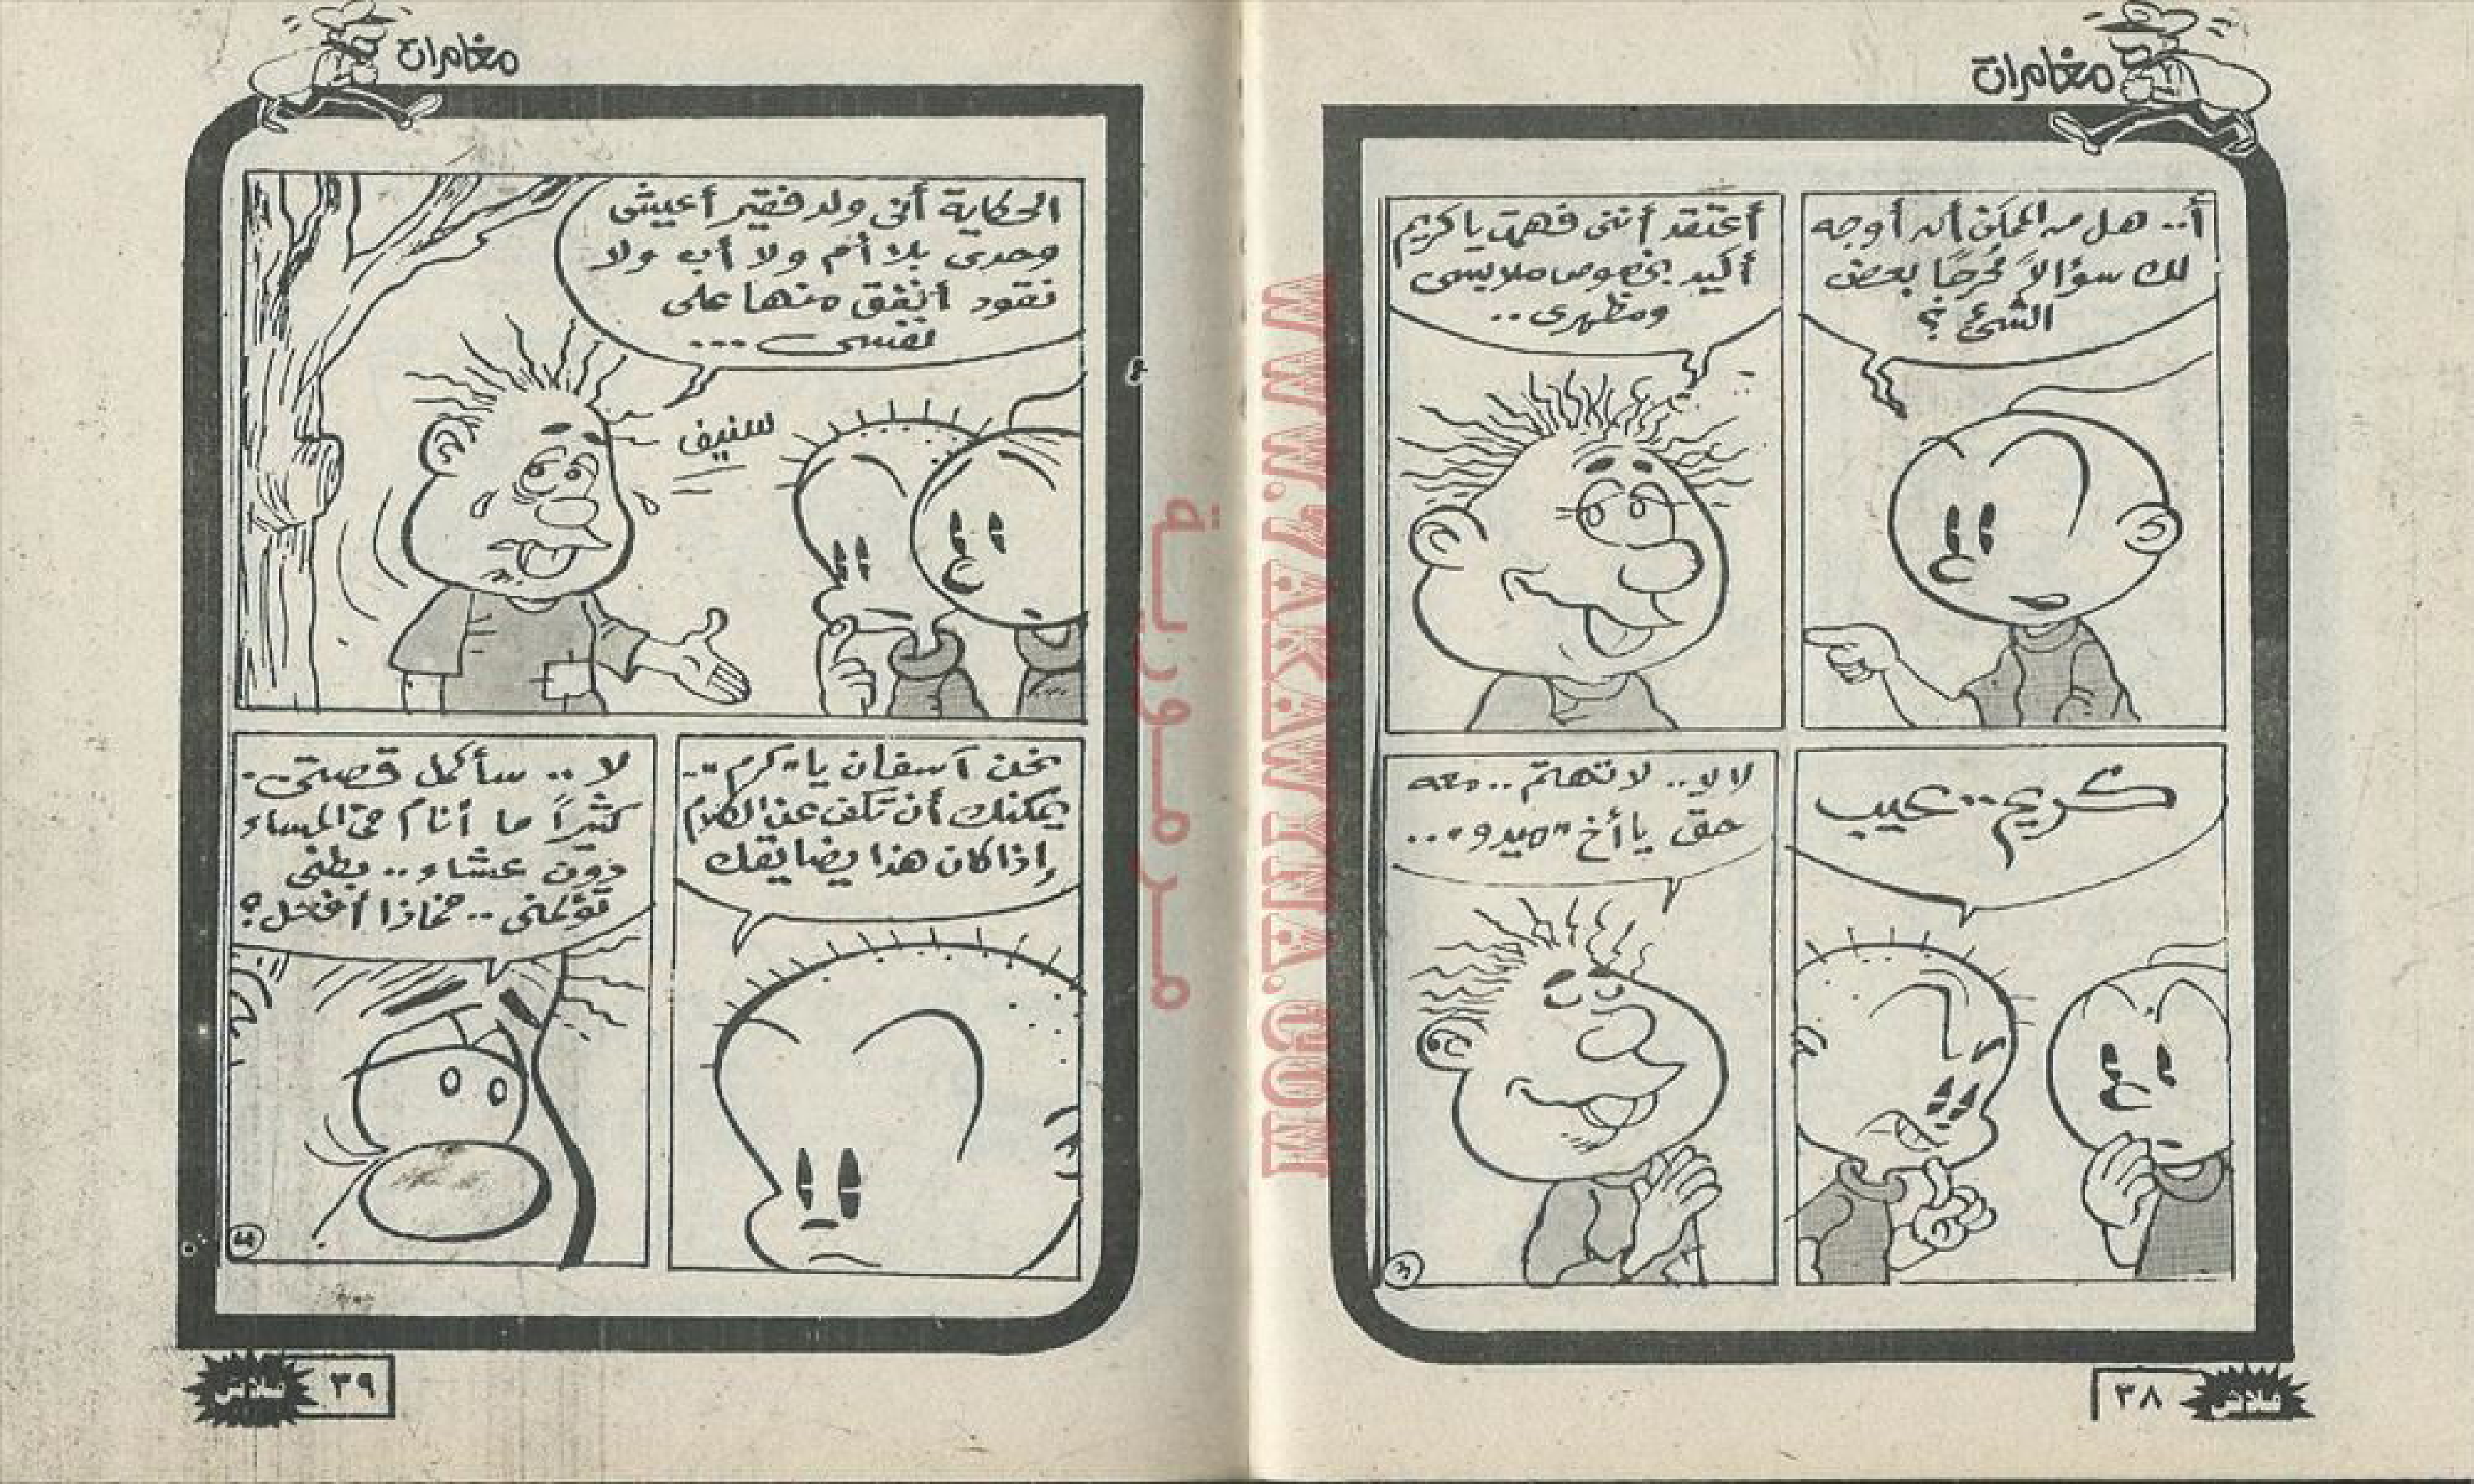 مغامرات
أ.. هل من الممكن أن أوجه
لك سؤالاً مُحرجًا بعض
الشئ ؟
أعتقد أننى فهمت يا كريم
أكيد بخصوص ملابسى
ومظهرى..
كريم.. عيب
لا لا.. لا تهتم.. معه
حق يا أخ "ميدو"...
٣٨
فلاش
مغامرات
الحكاية أنى ولد فقير أعيش
وحدى بلا أم ولا أب ولا
نقود أنفق منها على
نفسى...
سنيف
نحن آسفان يا "كرم"..
يمكنك أن تكف عن الكلام
إذا كان هذا يضايقك
لا.. سأكمل قصتى.
كثيرًا ما أنام فى المساء
دون عشاء.. بطنى
تؤلمنى.. فماذا أفعل؟
٣٩
فلاش
مرمورية
WWW.7AKAWINA.COM